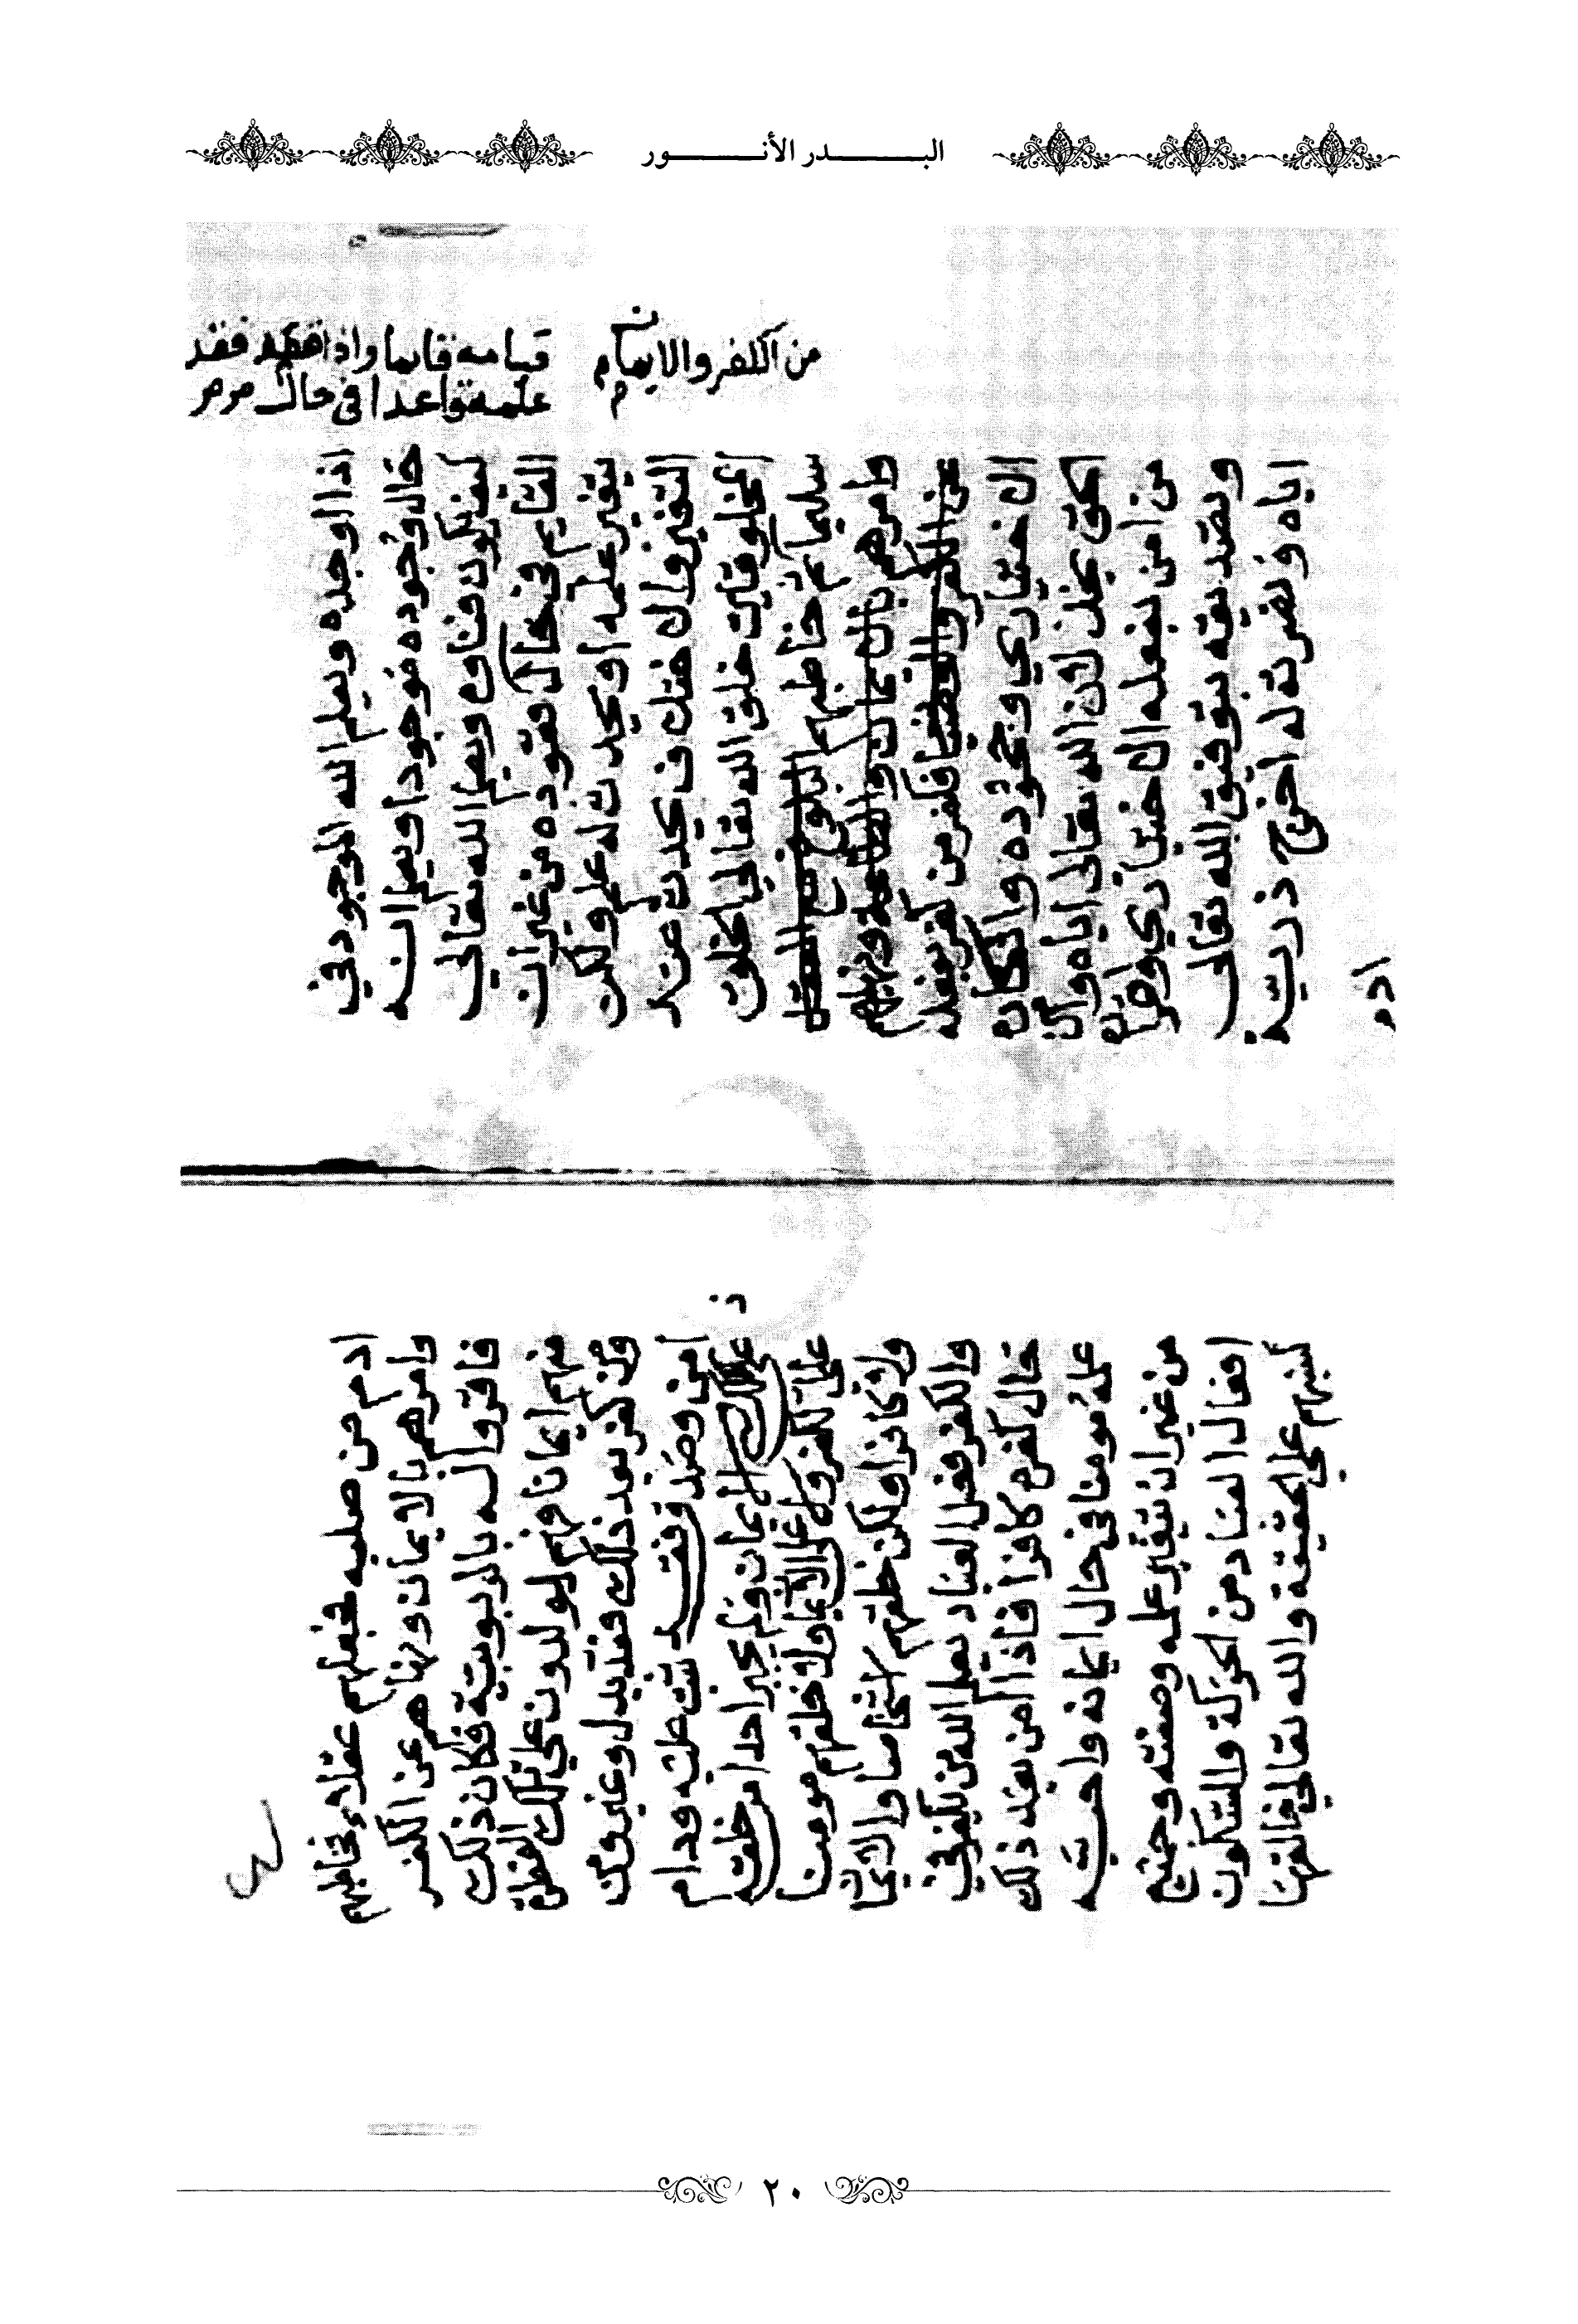 البدر الأنور
من الكفر والايمان
قيامه قايما واذا قعد فقد
علمه قاعدا في حال
اذا اوجده ويعلم الله الموجود في
حال وجوده موجودا ويعلم انه
كيف يكون فناوه ويعلم الله تعالى
القائم في حال قعوده من غير ان
يتغير علمه او يحدث له علم ولكن
التغير والاختلاف يحدث عند
المخلوقين خلق الله تعالى الخلق
سليما ثم خاطبهم
وامرهم بالايمان والطاعة ونهاهم
عن الكفر فكفر من كفر بفعله
الاختياري وجحوده وانكاره
الحق بخذلان الله تعالى اياه وآمن
من امن بفعله الاختياري واقراره
وتصديقه بتوفيق الله تعالى
اياه ونصرته له اخرج ذرية
ادم
ادم من صلبه فجعلهم عقلاء فخاطبهم
وامرهم بالايمان ونهاهم عن الكفر
فاقروا له بالربوبية فكان ذلك
منهم ايمانا فهم يولدون على تلك الفطرة
ومن كفر بعد ذلك فقد بدل وغير ومن
امن وصدق فقد ثبت عليه ودام
على ذلك الايمان ولم يجبر احدا من خلقه
على الكفر ولا على الايمان ولا خلقهم مومنا
ولا كافرا ولكن خلقهم اشخاصا والايمان
والكفر فعل العباد يعلم الله من يكفر في
حال كفره كافرا فاذا امن بعد ذلك
علمه مومنا في حال ايمانه واحبه
من غير ان يتغير علمه وصفته وجميع
افعال العباد من الحركة والسكون
كسبهم على الحقيقة والله تعالى خالقها
٢٠